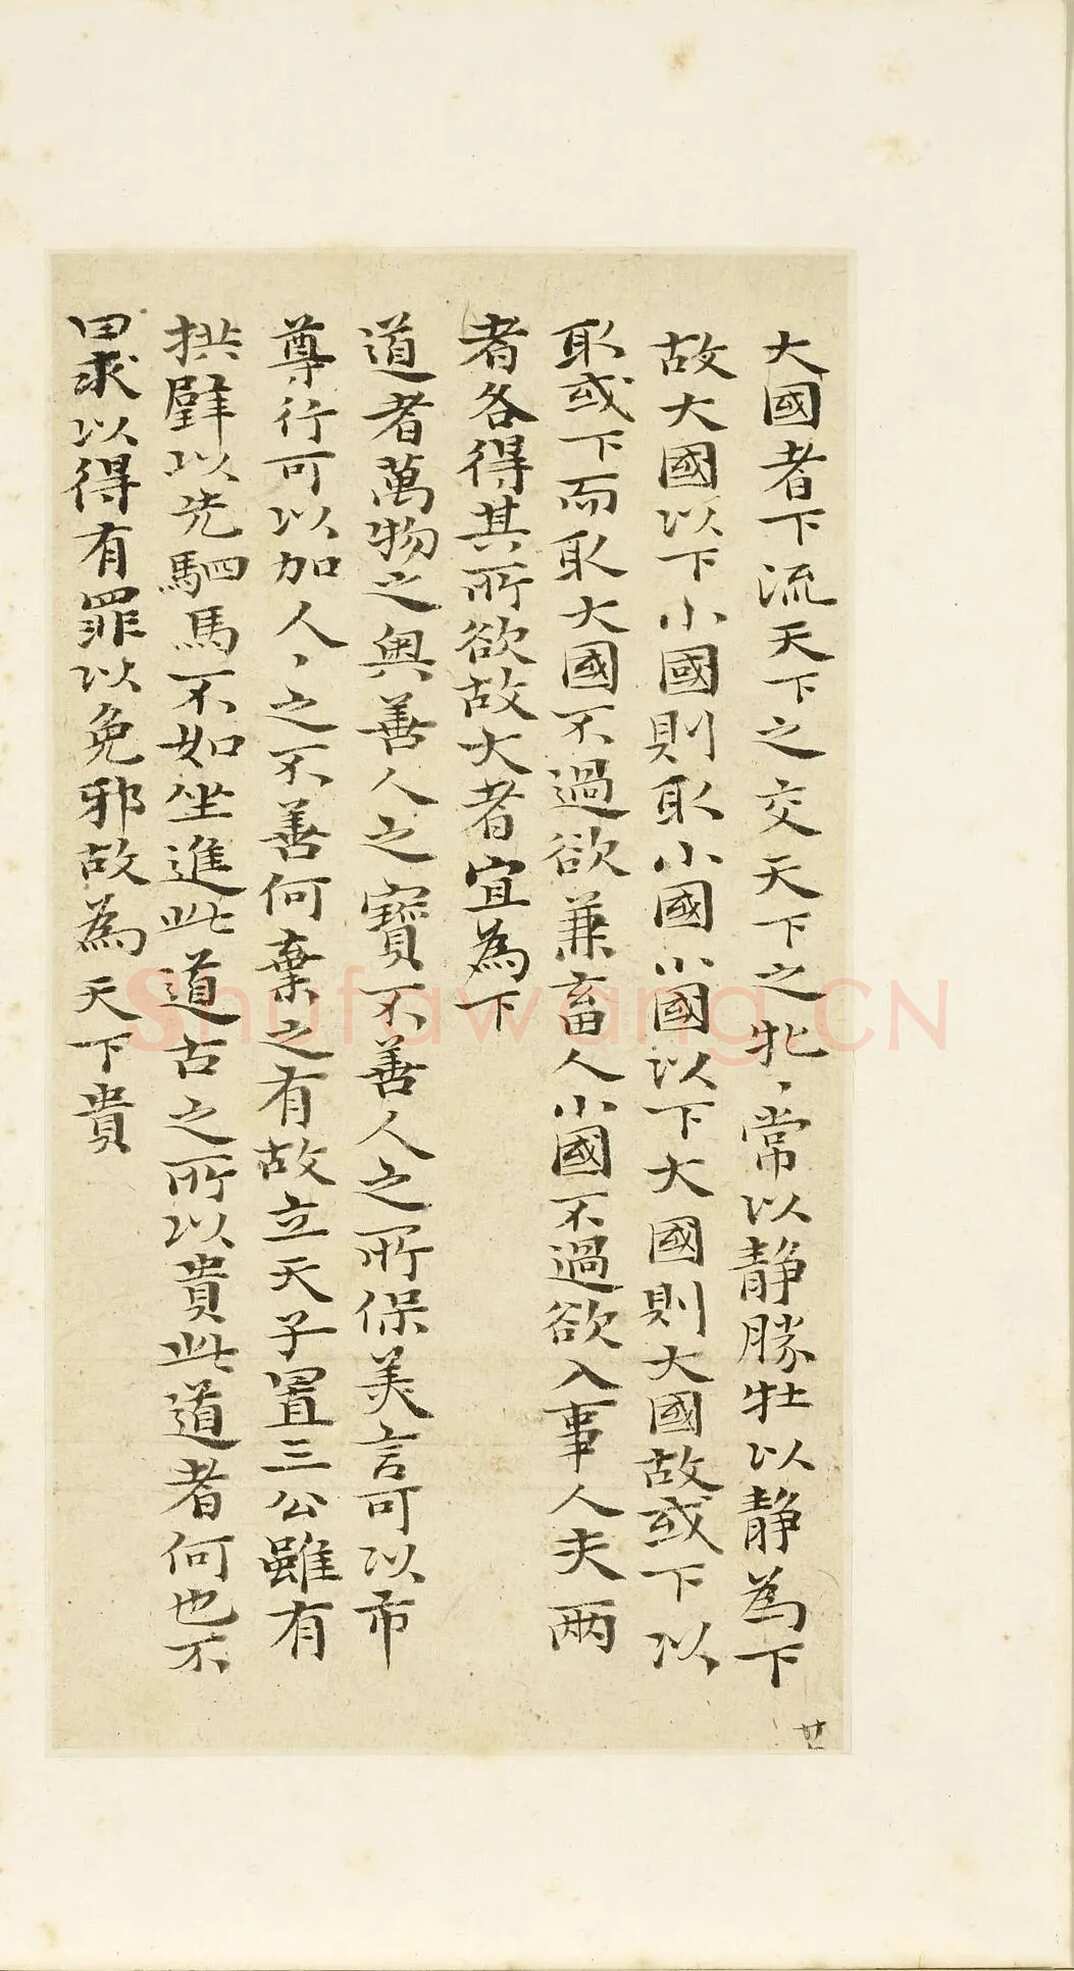 大國者下流天下之交天下之牝、常以静勝牡以静為下
故大國以下小國則取小國小國以下大國則大國故或下以
取或下而取大國不過欲兼畜人小國不過欲入事人夫兩
者各得其所欲故大者宜為下
道者萬物之奧善人之寶不善人之所保美言可以市
尊行可以加人、之不善何棄之有故立天子置三公雖有
拱璧以先駟馬不如坐進此道古之所以貴此道者何也不
曰求以得有罪以免邪故為天下貴
廿
Shufawang.CN